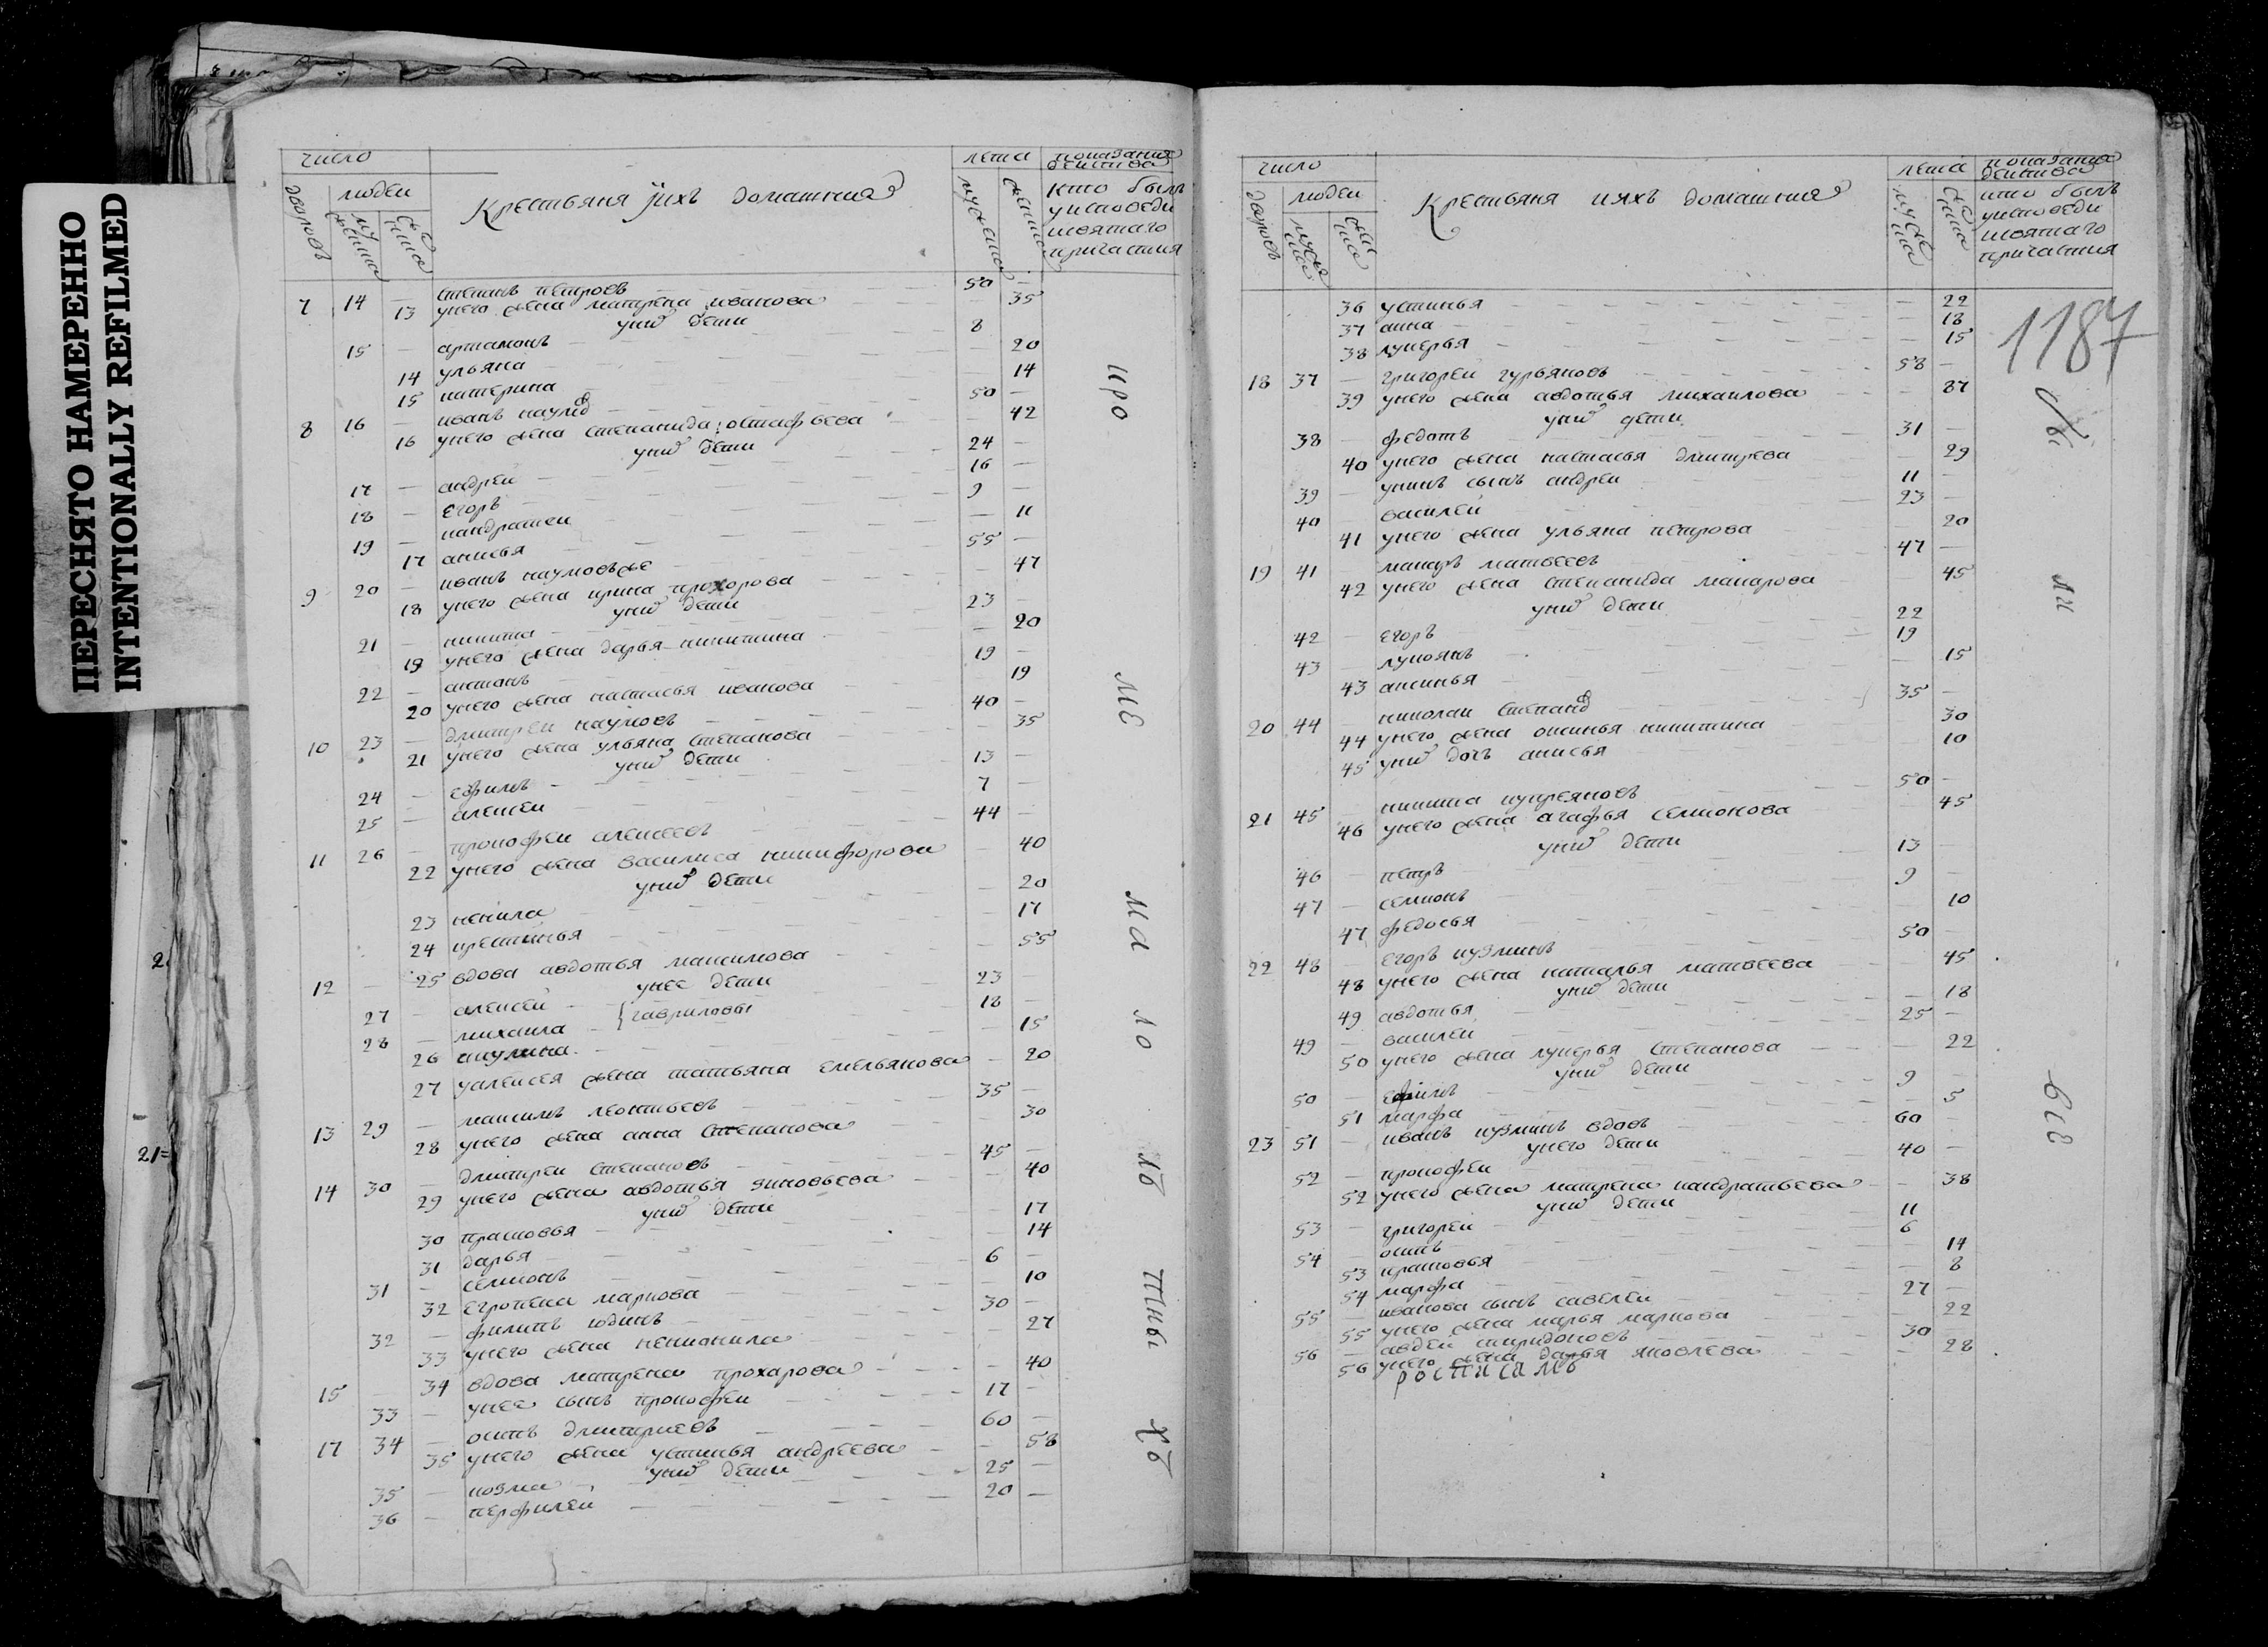 ПЕРЕСНЯТО НАМЕРЕННО
INTENTIONALLY REFILMED
число лета показания действа
дворовъ людей Крестьяня ихъ домашния мужеска женска кто былъ
мужеска женска уисповеди
исвятаго
причастия
7 14 — степанъ петровъ — 50 —
13 унего жена матрена иванова — 35
униӧ дети
15 — артамонъ — 8
14 ульяна — 20
15 катерина — 14
8 16 — иванъ наумо — 50 —
16 унего жена степанида остафьева 42
униӧ дети
17 — андреи — 24 —
18 — егоръ — 16 —
19 — кандратеи — 9 —
17 анисья — 11
9 20 — иванъ наумовъ же 55 —
18 унего жена ирина прохорова — 47
униӧ дети
21 — никита — 23 —
19 унего жена дарья никитина — 20
22 — антонъ — 19 —
20 унего жена настасья иванова — 19
10 23 — дмитреи наумовъ — 40 —
21 унего жена ульяна степанова — 35
униӧ дети
24 — ефимъ — 13 —
25 — алексеи — 7 —
11 26 — прокофеи алексеевъ — 44 —
22 унего жена василиса никифорова — 40
униӧ дети
23 ненила — 20
24 крестинья — 17
12 — 25 вдова авдотья максимова — 55
унее дети
27 — алексеи — 23 —
28 — михаила — { гавриловы 18 —
26 акулина — 15
27 уалексея жена татьяна емельянова — 20
13 29 — максимъ леонтьевъ — 35 —
28 унего жена анна степанова — 30
14 30 — дмитреи степановъ — 45 —
29 унего жена авдотья зиновьева — 40
униӧ дети
30 прасковья — 17
31 дарья — 14
31 — семионъ — 6 —
32 егропена маркова — 10
32 — филипъ юдинъ — 30 —
33 унего жена неионила — 27
15 — 34 вдова матрена прохарова — 40
33 — унее сынъ прокофеи — 17 —
17 34 — осипъ дмитриевъ — 60 —
35 унего жена устинья андреева — 58
униӧ дети
35 — козма — 25 —
36 — перфилеи — 20 —
кро
ме
ма
ло
лѣ
тны
хъ
число лета показания действа
дворовъ людей Крестьяня ияхъ домашния мужеска женска кто былъ
мужеска женска уисповеди
исвятаго
причастия
1187
36 устинья — 22
37 анна — 18
38 лукерья — 15
18 37 — григореи гурьяновъ — 58 —
39 унего жена авдотья михаилова — 87
униӧ дети
38 — федотъ — 31 —
40 унего жена настасья дмитрева — 29
39 — унихъ сынъ андреи 11 —
40 василеи — 23 —
41 унего жена ульяна петрова — 20
19 41 макаръ матвеевъ 47 —
42 унего жена степанида макарова 45
униӧ дети
42 — егоръ 22
43 — лукоянъ — 19
43 аксинья — 15
20 44 — николаи степано 35 —
44 унего жена оксинья никитина 30
45 униӧ дочь анисья 10
21 45 никита купреяновъ 50 —
46 унего жена агафья семионова 45
униӧ дети
46 — петръ 13 —
47 — семионъ 9 —
47 федосья 10
22 48 — егоръ кузминъ — 50 —
48 унего жена наталья матвеева 45
униӧ дети
49 авдотья — 18
49 — василеи — 25 —
50 унего жена лукерья степанова — 22
униӧ дети
50 — ефимъ — 9 —
51 марфа — 5
23 51 — иванъ кузминъ вдовъ 60 —
унего дети
52 — прокофеи — 40 —
52 унего жена матрена кандратьева — 38
униӧ дети
53 — григореи — 11
54 — осипъ — 6
53 прасковья — 14
54 марфа — 8
55 — иванова сынъ савелеи 27 —
55 унего жена марья маркова — 22
56 — авдеи спиридоновъ 30
56 унего жена дарья яковлева — 28
росписалъ
ли
все